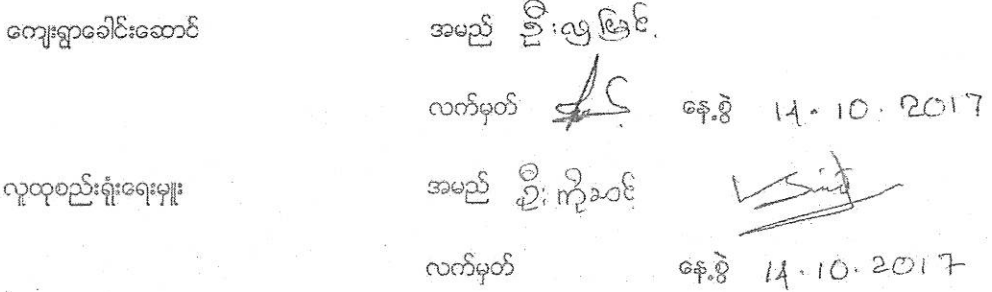 ကျေးရွာခေါင်းဆောင် အမည် ဦးလှမြင့်
လက်မှတ် နေ့စွဲ 14.10.2017
လူထုစည်းရုံးရေးမှူး အမည် ဦးကိုဆင်
လက်မှတ် နေ့စွဲ 14.10.2017